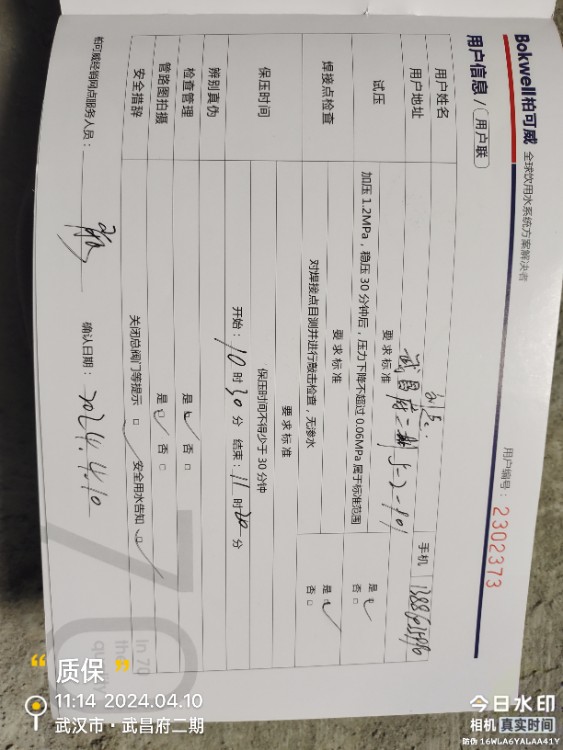 Bokwell柏可威 全球饮用水系统方案解决者
用户信息 / 用户联
用户编号：2302373
用户姓名
手机
用户地址 武昌府二期
要求标准
试压 加压 1.2MPa，稳压 30 分钟后，压力下降不超过 0.06MPa 属于标准范围 是 ✓ 否 □
要求标准
焊接点检查 对焊接点目测并进行敲击检查，无渗水 是 ✓ 否 □
要求标准
保压时间不得少于 30 分钟
保压时间 开始：10 时 30 分 结束：11 时 20 分
辨别真伪
检查管理 是 ✓ 否 □
管路图拍摄 是 ✓ 否 □
安全措辞 关闭总阀门等提示 □ 安全用水告知 □
柏可威经销网点服务人员：
确认日期：2024.4.10
70
In 70
the
qu
“质保”
11:14 2024.04.10
武汉市·武昌府二期
今日水印
相机 真实时间
防伪 16WLA6YALAA41Y